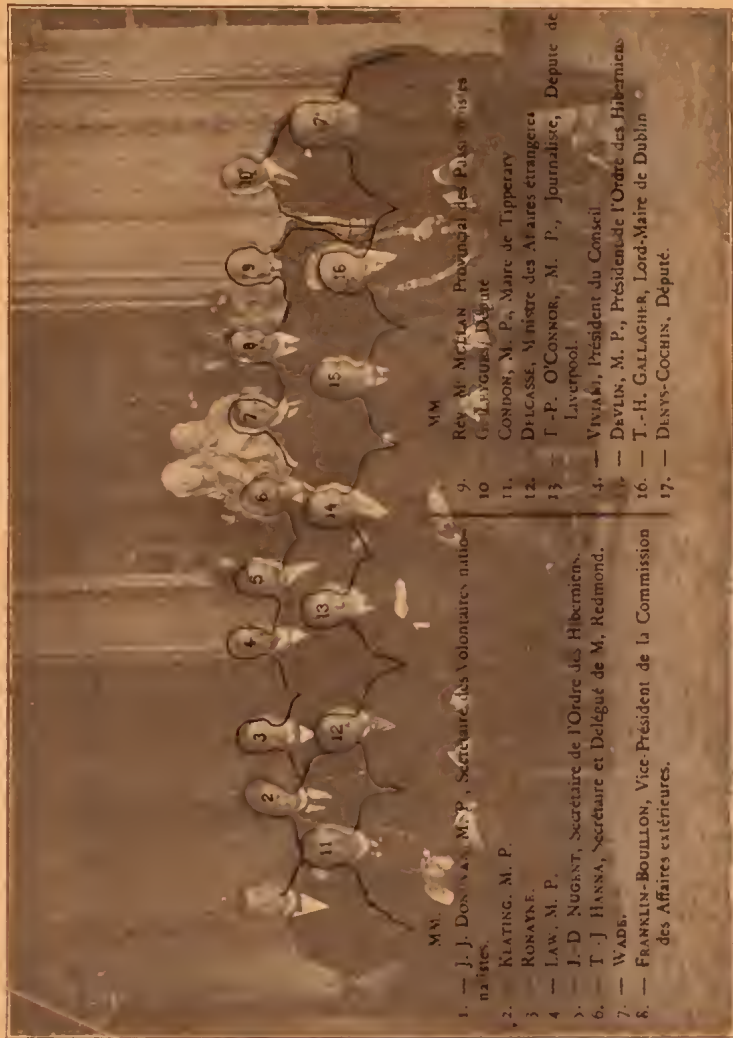 MM.
1. — J. J. DONOVAN, M. P., Secrétaire des Volontaires natio-
nalistes.
2. — KEATING, M. P.
3 — RONAYNE.
4 — LAW, M. P.
5. — J.-D NUGENT, Secrétaire de l'Ordre des Hiberniens.
6. — T -J HANNA, Secrétaire et Délégué de M. Redmond.
7. — WADE.
8. — FRANKLIN-BOUILLON, Vice-Président de la Commission
des Affaires extérieures.
MM
9. Rév. Mc MULLAN Provincial des Passionnistes
10 G. LEYGUES, Député
11. CONDON, M. P., Maire de Tipperary
12. DELCASSÉ, Ministre des Affaires étrangères
13 — T -P. O'CONNOR, M. P., Journaliste, Député de
Liverpool.
4. — VIVIANI, Président du Conseil
— DEVLIN, M. P., Président de l'Ordre des Hiberniens
16. — T.-H. GALLAGHER, Lord-Maire de Dublin
17. — DENYS-COCHIN, Député.
11
2
3
12
4
5
13
6
14
7
8
15
9
16
10
7